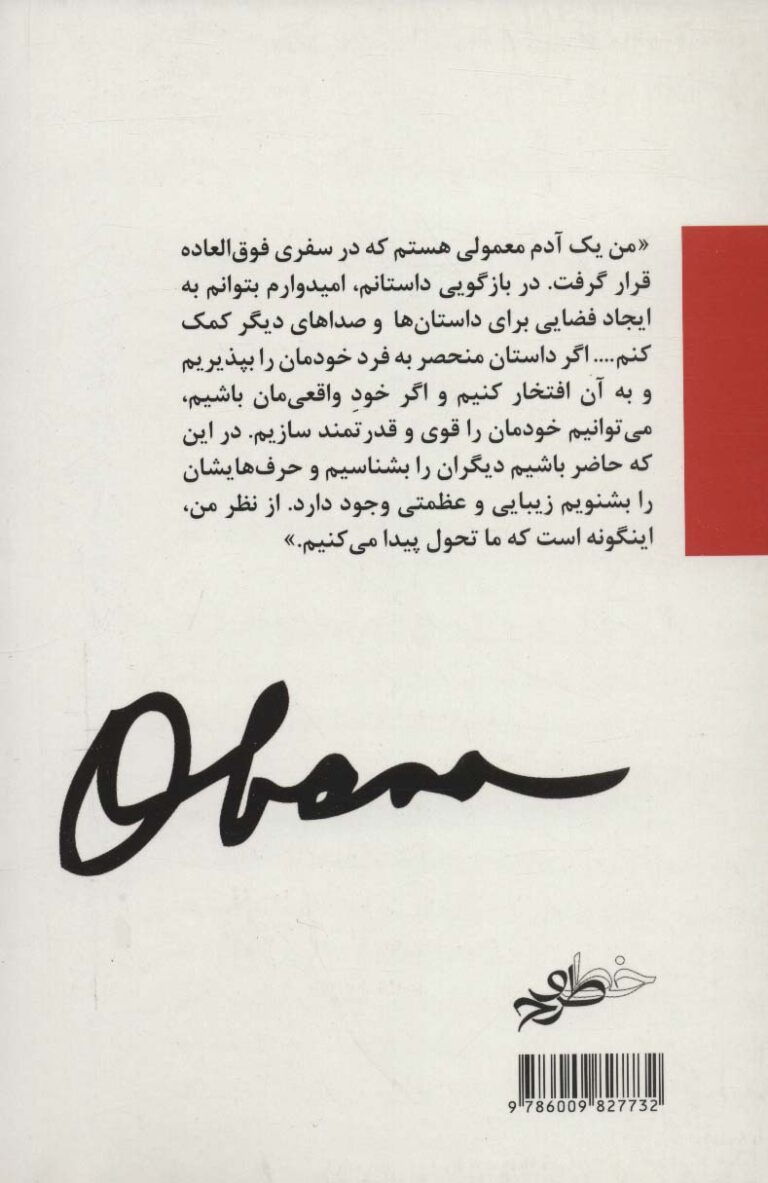 «من یک آدم معمولی هستم که در سفری فوق‌العاده
قرار گرفت. در بازگویی داستانم، امیدوارم بتوانم به
ایجاد فضایی برای داستان‌ها و صداهای دیگر کمک
کنم.... اگر داستان منحصر به فرد خودمان را بپذیریم
و به آن افتخار کنیم و اگر خودِ واقعی‌مان باشیم،
می‌توانیم خودمان را قوی و قدرتمند سازیم. در این
که حاضر باشیم دیگران را بشناسیم و حرف‌هایشان
را بشنویم زیبایی و عظمتی وجود دارد. از نظر من،
اینگونه است که ما تحول پیدا می‌کنیم.»
Obama
خط و طرح
9 786009 827732